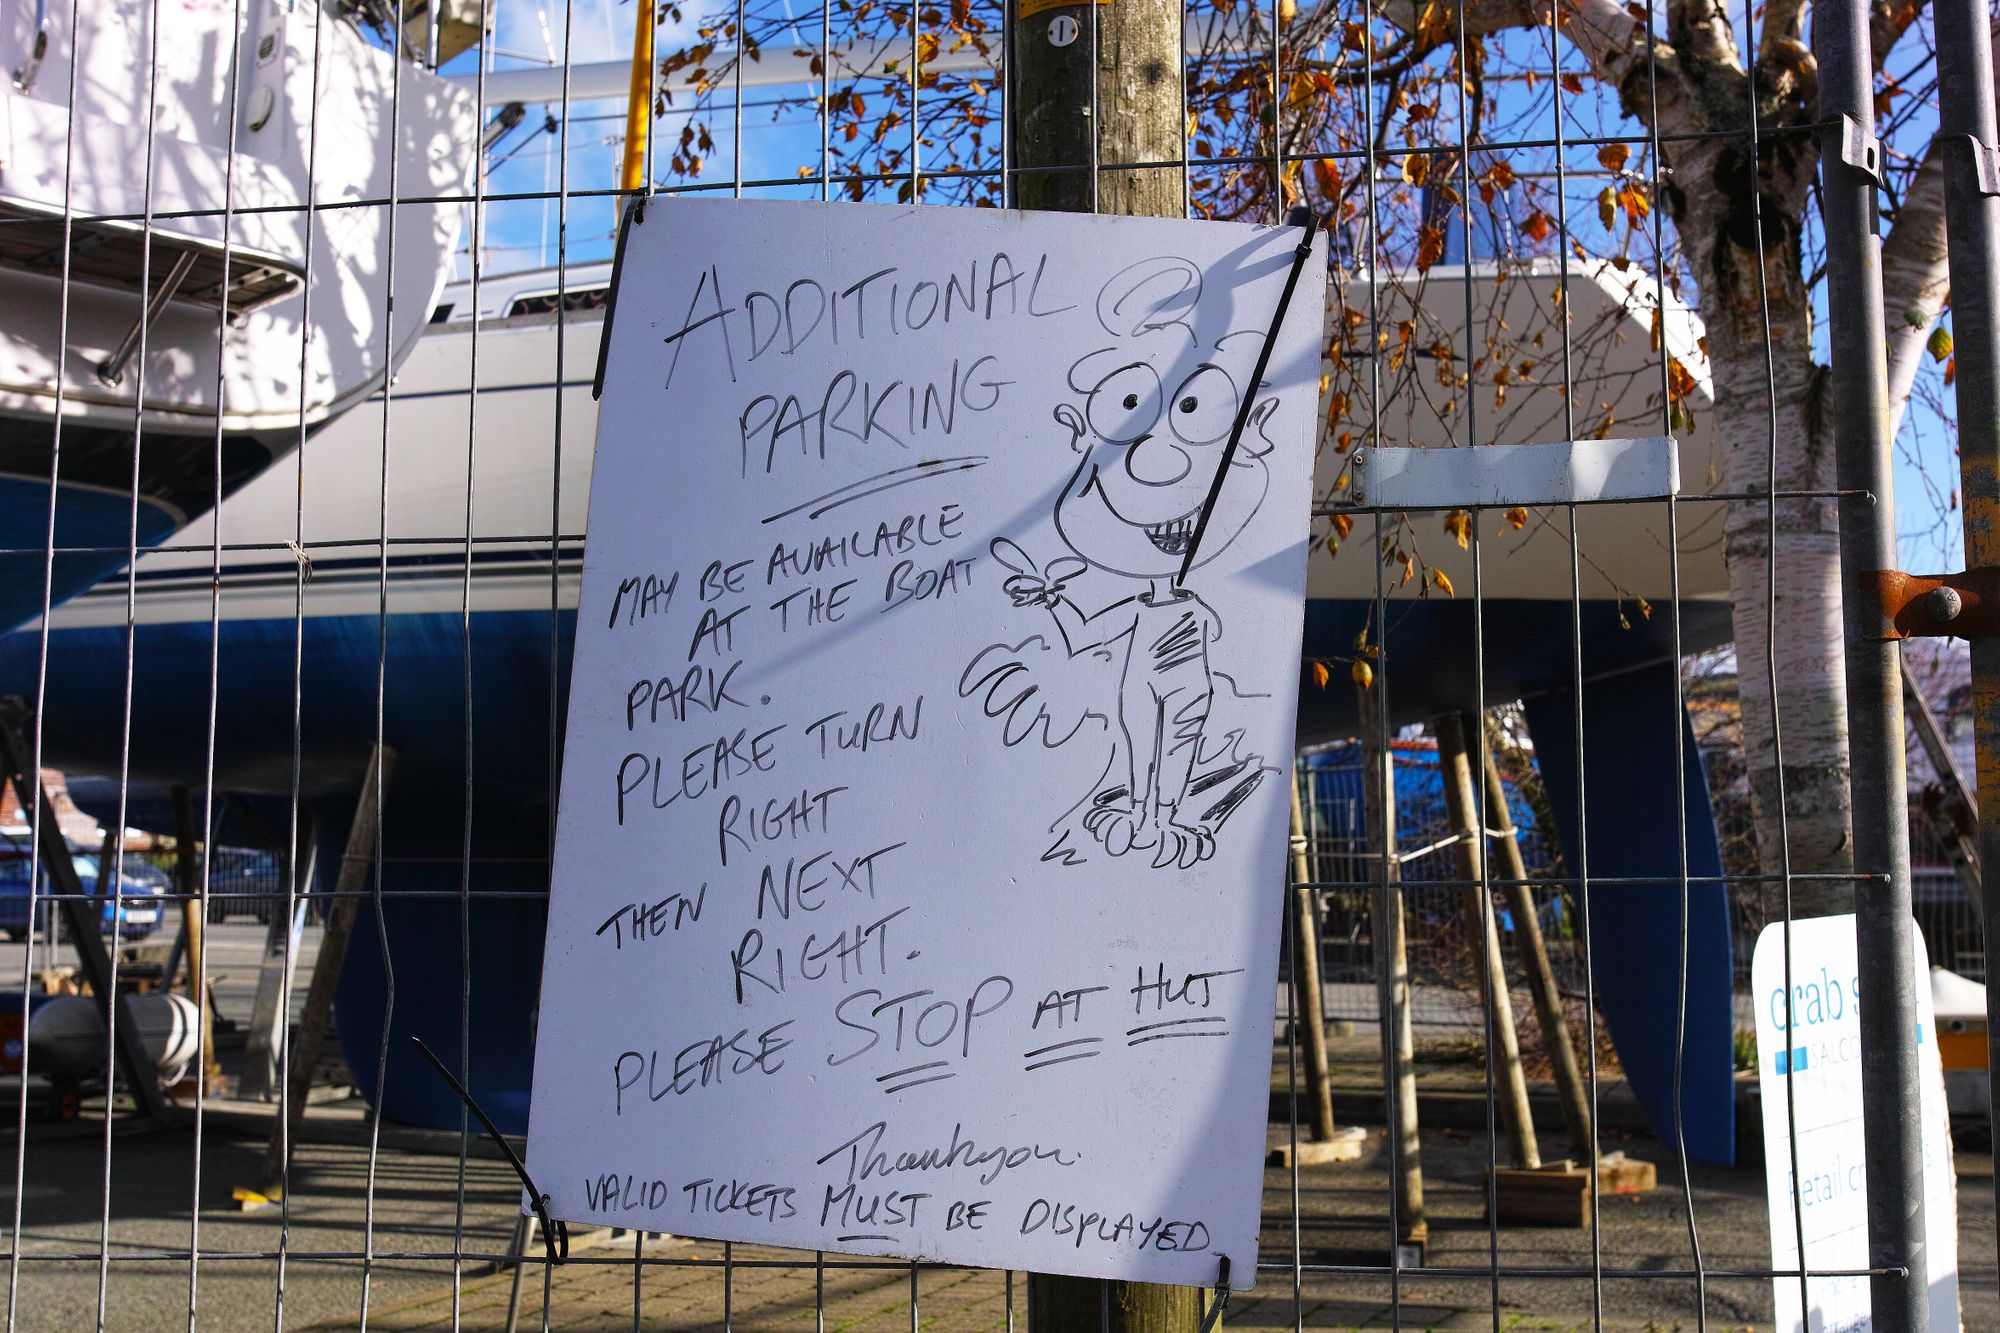 1
ADDITIONAL
PARKING
MAY BE AVAILABLE
AT THE BOAT
PARK.
PLEASE TURN
RIGHT
THEN NEXT
RIGHT.
PLEASE STOP AT HUT
Thankyou.
VALID TICKETS MUST BE DISPLAYED
crab